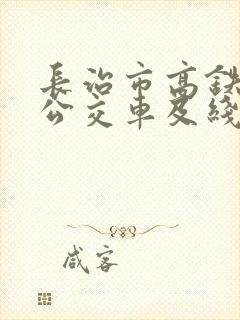 長治市高鉄
公交車及綫
咸客